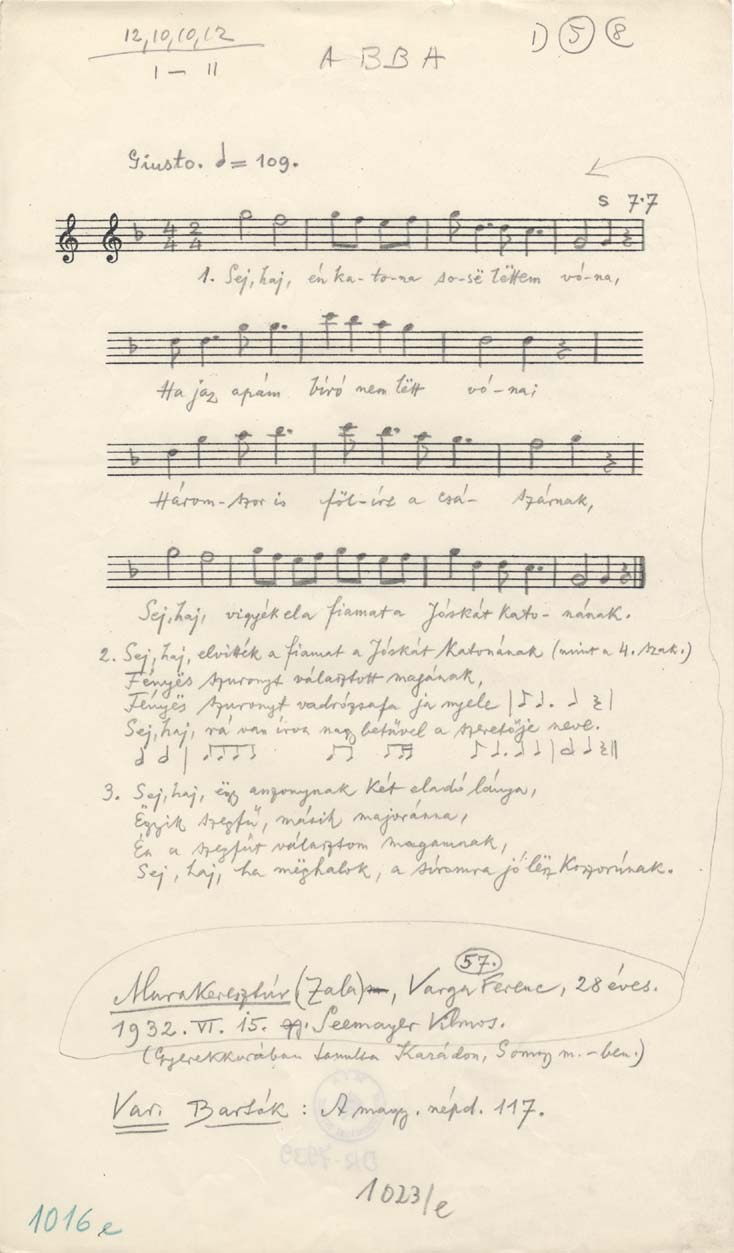 12,10,10,12
I – II
A B B A
1) 5 8
Giusto. = 109.
S 7.7
4 2
4 4
1. Sej, haj, én ka-to-na so-së lëttem vó-na,
Ha jaz apám bíró nem lëtt vó-na;
Három-szor is föl-írt a csá- szárnak,
Sej, haj, vigyék el a fiamat a Jóskát kato-nának.
2. Sej, haj, elvitték a fiamat a Jóskát katonának (mint a 4. szak.)
Fényës szuronyt választott magának,
Fényës szuronyt vadrózsafa ja nyele
Sej, haj, rá van írva nagy betűvel a szeretője neve.
3. Sej, haj, ëgy asszonynak két eladó lánya,
Ëgyik szegfű, másik majoránna,
Én a szegfűt választom magamnak,
Sej, haj, ha mëghalok, a síromra jó lësz koszorúnak.
57.
Murakeresztúr (Zala), Varga Ferenc, 28 éves.
1932. VI. 15. Seemayer Vilmos.
(Gyerekkorában tanulta Karádon, Somogy m.-ben.)
Var. Bartók: A magy. népd. 117.
DR-7939
1023/e
1016e